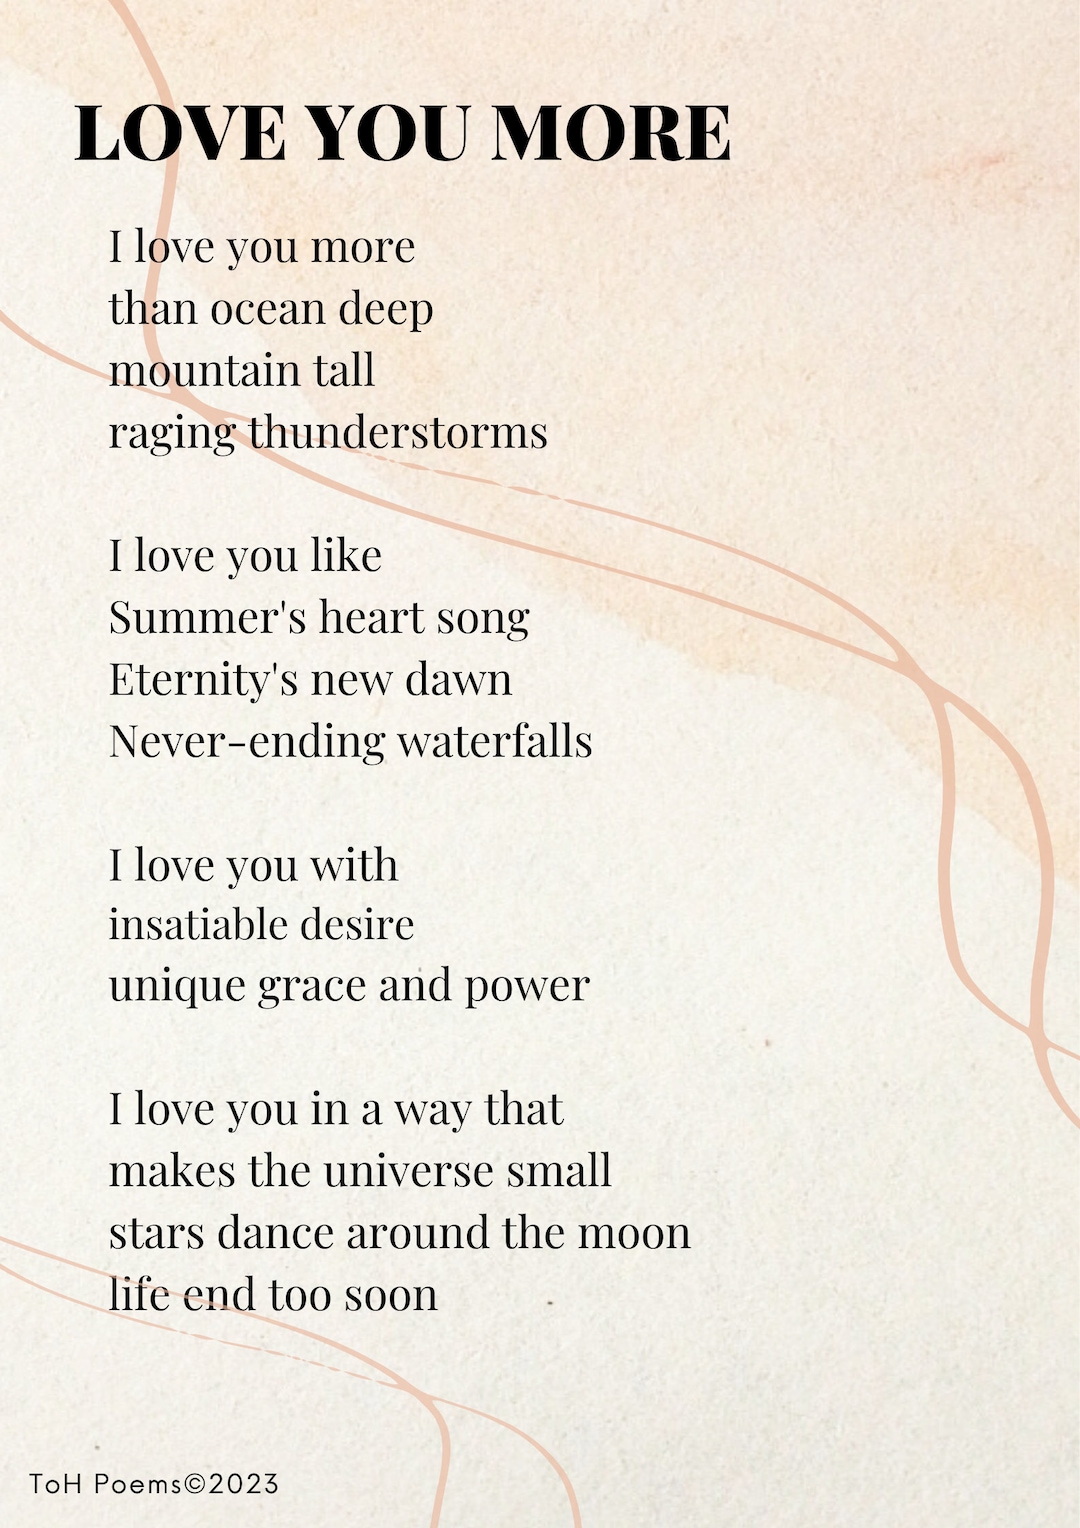 LOVE YOU MORE
I love you more
than ocean deep
mountain tall
raging thunderstorms
I love you like
Summer's heart song
Eternity's new dawn
Never-ending waterfalls
I love you with
insatiable desire
unique grace and power
I love you in a way that
makes the universe small
stars dance around the moon
life end too soon
ToH Poems©2023